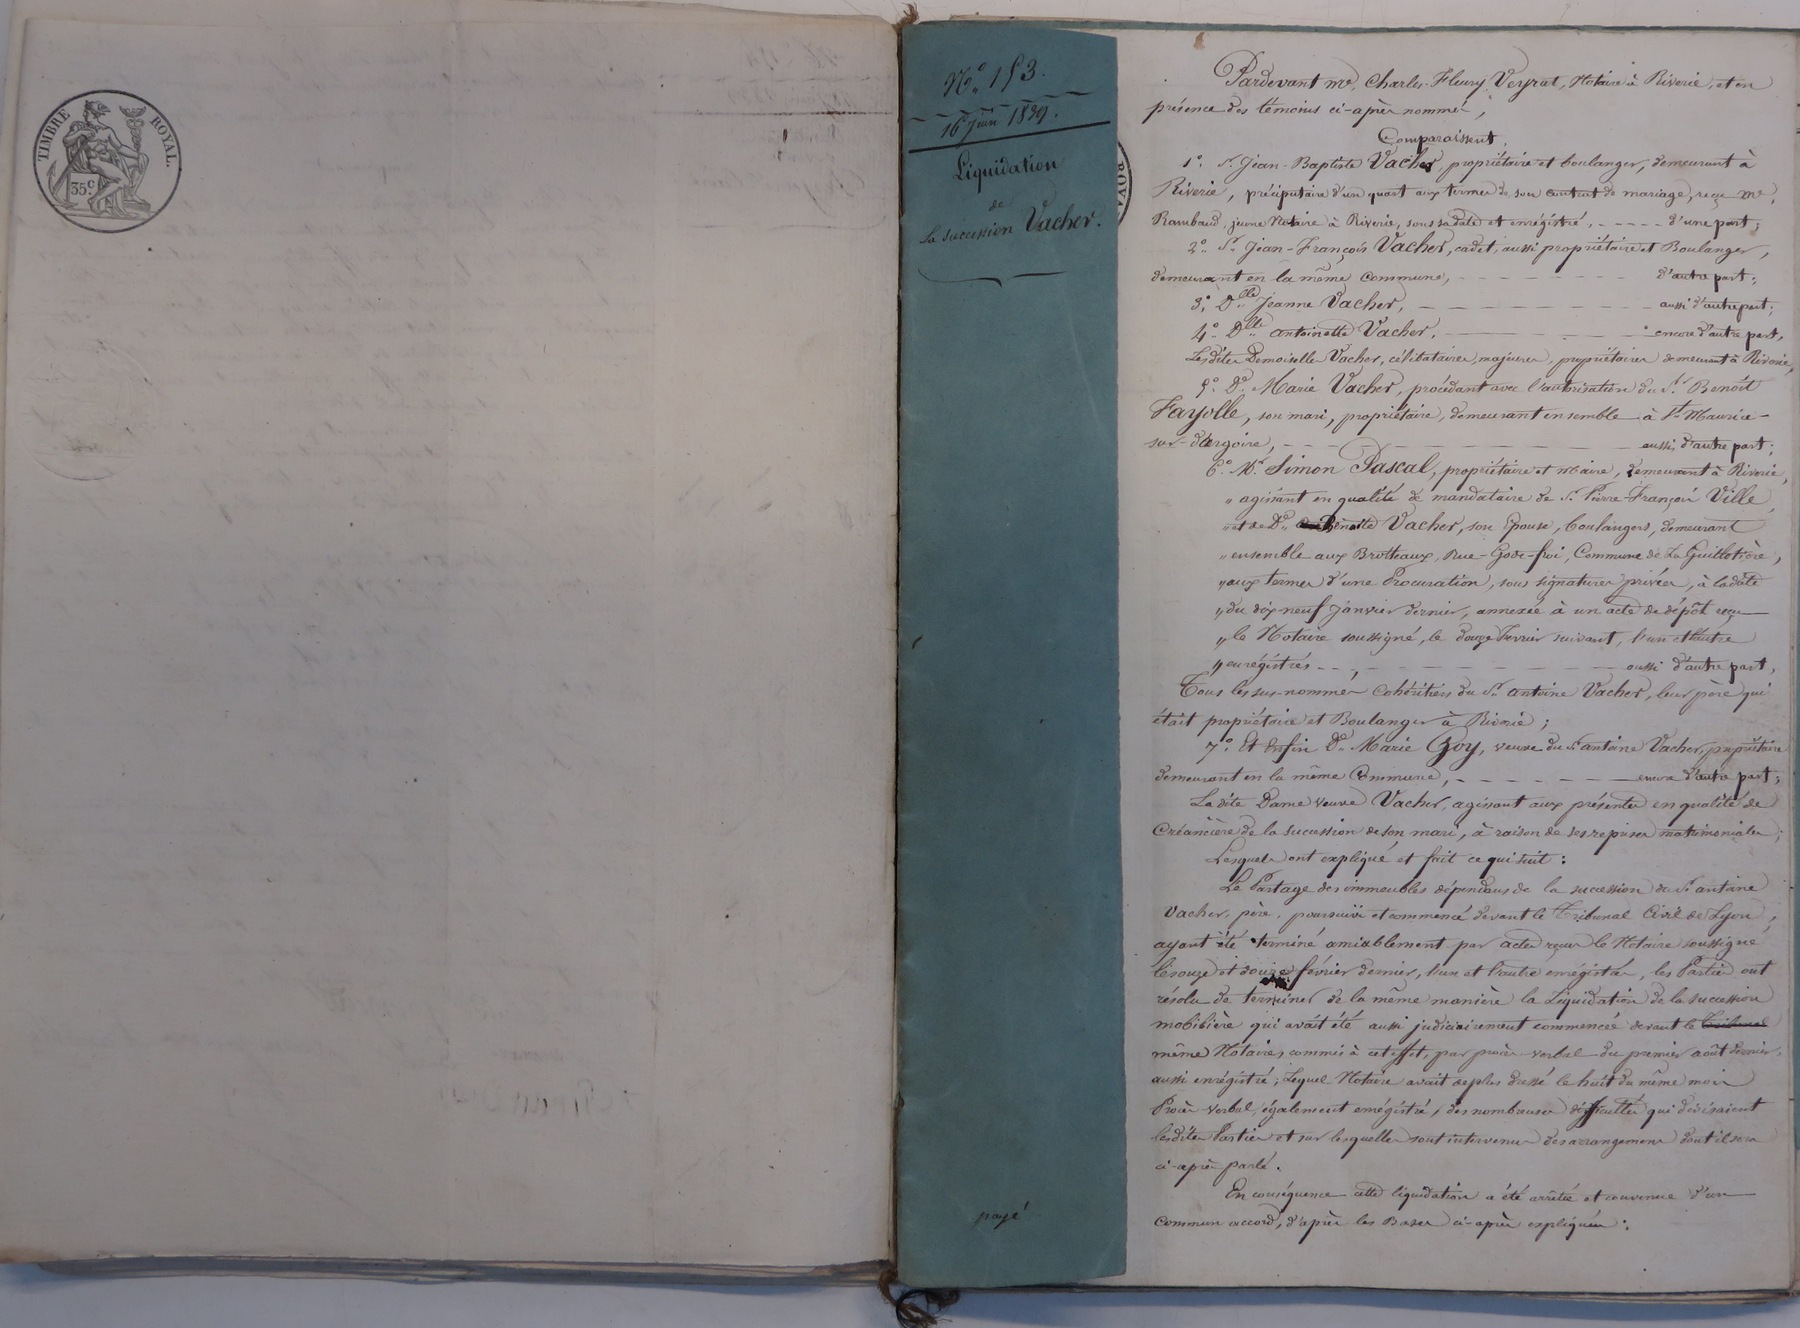 TIMBRE ROYAL.
35c.
No. 153.
16 Juin 1839.
Liquidation
de
La succession Vacher.
payé
Pardevant me. Charles-Fleury Veyrat, Notaire à Riverie, et en
présence des témoins ci-après nommés,
Comparaissent,
1o. Sr. Jean-Baptiste Vacher, propriétaire et boulanger, demeurant à
Riverie, préciputaire d'un quart aux termes de son contrat de mariage, reçu me.
Rambaud, jeune Notaire à Riverie, sous sa date et enrégistré, d'une part;
2o. Sr. Jean-François Vacher, cadet, aussi propriétaire et Boulanger,
demeurant en la même Commune, d'autre part;
3o. Dlle Jeanne Vacher, aussi d'autre part;
4o. Dlle antoinette Vacher, encore d'autre part,
Lesdites Demoiselles Vacher, célibataires, majeures, propriétaires demeurant à Riverie,
5o. De. Marie Vacher, procédant avec l'autorisation du Sr. Benoît
Fayolle, son mari, propriétaire, demeurant ensemble à St. Maurice-
sur-d'argoire, aussi d'autre part;
6o. Mr. Simon Pascal, propriétaire et maire, demeurant à Riverie,
" agissant en qualité de mandataire de Sr. Pierre-François Ville,
" et de De. Benoîte Vacher, son Épouse, boulangers, demeurant
" ensemble aux Brotteaux, Rue-Gode-froi, Commune de La Guillotière,
" aux termes d'une Procuration, sous signatures privées, à la date
" du dix-neuf Janvier dernier, annexée à un acte de dépôt reçu
" le Notaire soussigné, le douze Fevrier suivant, l'un et l'autre
" enrégistrés aussi d'autre part,
Tous les sus-nommés Cohéritiers du Sr. antoine Vacher, leur père qui
était propriétaire et Boulanger à Riverie;
7o. Et Enfin De. Marie Goy, veuve du Sr antoine Vacher, propriétaire
demeurant en la même Commune, encore d'autre part;
La dite Dame veuve Vacher, agissant aux présentes en qualité de
Créancière de la succession de son mari, à raison de ses reprises matrimoniales;
Lesquels ont expliqué et fait ce qui suit:
Le Partage des immeubles dépendans de la succession du Sr antoine
Vacher, père, poursuivi et commencé devant le Tribunal Civil de Lyon,
ayant été terminé amiablement par actes reçus le Notaire soussigné
les onze et douze février dernier, l'un et l'autre enrégistrés, les Parties ont
résolu de terminer de la même manière la Liquidation de la succession
mobilière qui avait été aussi judiciairement commencée devant le Tribunal
même Notaire, commis à cet effet, par procès-verbal du premier août dernier,
aussi enrégistré; Lequel Notaire avait de plus dressé le huit du même mois
Procès-verbal, également enrégistré, des nombreuses difficultés qui divisaient
lesdites Parties et sur lesquelles sont intervenus des arrangemens dont il sera
ci-après parlé.
En conséquence cette liquidation a été arrêtée et convenue d'un
commun accord, d'après les Bases ci-après expliquées: